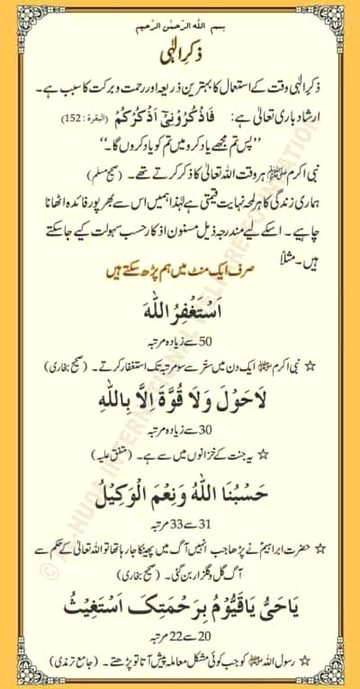 بسم اللہ الرحمٰن الرحیم
ذکرِ الٰہی
ذکرِ الٰہی وقت کے استعمال کا بہترین ذریعہ اور رحمت و برکت کا سبب ہے۔
ارشادِ باری تعالیٰ ہے: فَاذْكُرُوْنِيْٓ اَذْكُرْكُمْ (البقرۃ: 152)
’’پس تم مجھے یاد کرو میں تم کو یاد کروں گا۔‘‘
نبی اکرم ﷺ ہر وقت اللہ تعالیٰ کا ذکر کرتے تھے۔ (صحیح مسلم)
ہماری زندگی کا ہر لمحہ نہایت قیمتی ہے لہٰذا ہمیں اس سے بھرپور فائدہ اٹھانا
چاہیے۔ اسکے لیے مندرجہ ذیل مسنون اذکار حسب سہولت کیے جاسکتے
ہیں۔ مثلاً
صرف ایک منٹ میں ہم پڑھ سکتے ہیں
اَسْتَغْفِرُ اللهَ
50 سے زیادہ مرتبہ
☆ نبی اکرم ﷺ ایک دن میں ستّر سے سو مرتبہ تک استغفار کرتے۔ (صحیح بخاری)
لَاحَوْلَ وَلَا قُوَّةَ اِلَّا بِاللهِ
30 سے زیادہ مرتبہ
☆ یہ جنت کے خزانوں میں سے ہے۔ (متفق علیہ)
حَسْبُنَا اللهُ وَنِعْمَ الْوَكِيْلُ
31 سے 33 مرتبہ
☆ حضرت ابراہیمؑ نے پڑھا جب انہیں آگ میں پھینکا جارہا تھا تو اللہ تعالیٰ کے حکم سے
آگ گل و گلزار بن گئی۔ (صحیح بخاری)
يَاحَيُّ يَاقَيُّوْمُ بِرَحْمَتِكَ اَسْتَغِيْثُ
20 سے 22 مرتبہ
☆ رسول اللہ ﷺ کو جب کوئی مشکل معاملہ پیش آتا تو پڑھتے۔ (جامع ترمذی)